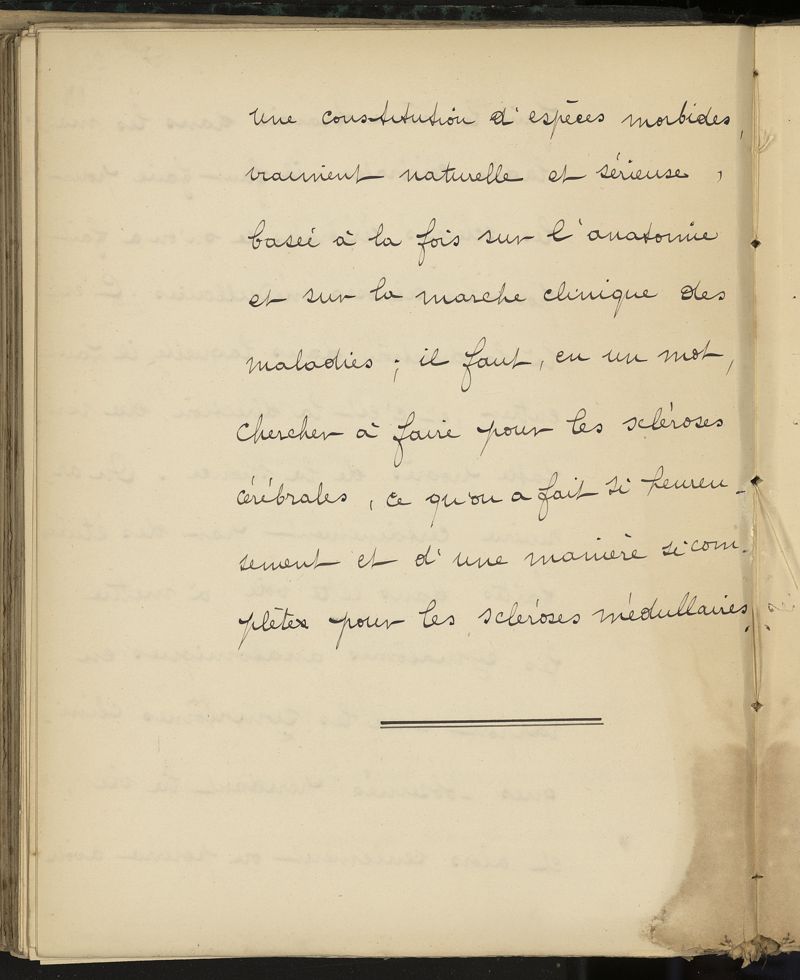 une constitution d'espèces morbides,
vraiment naturelle et sérieuse,
basée à la fois sur l'anatomie
et sur la marche clinique des
maladies ; il faut, en un mot,
chercher à faire pour les scléroses
cérébrales, ce qu'on a fait si heureu-
sement et d'une manière si com-
plète pour les scléroses médullaires.